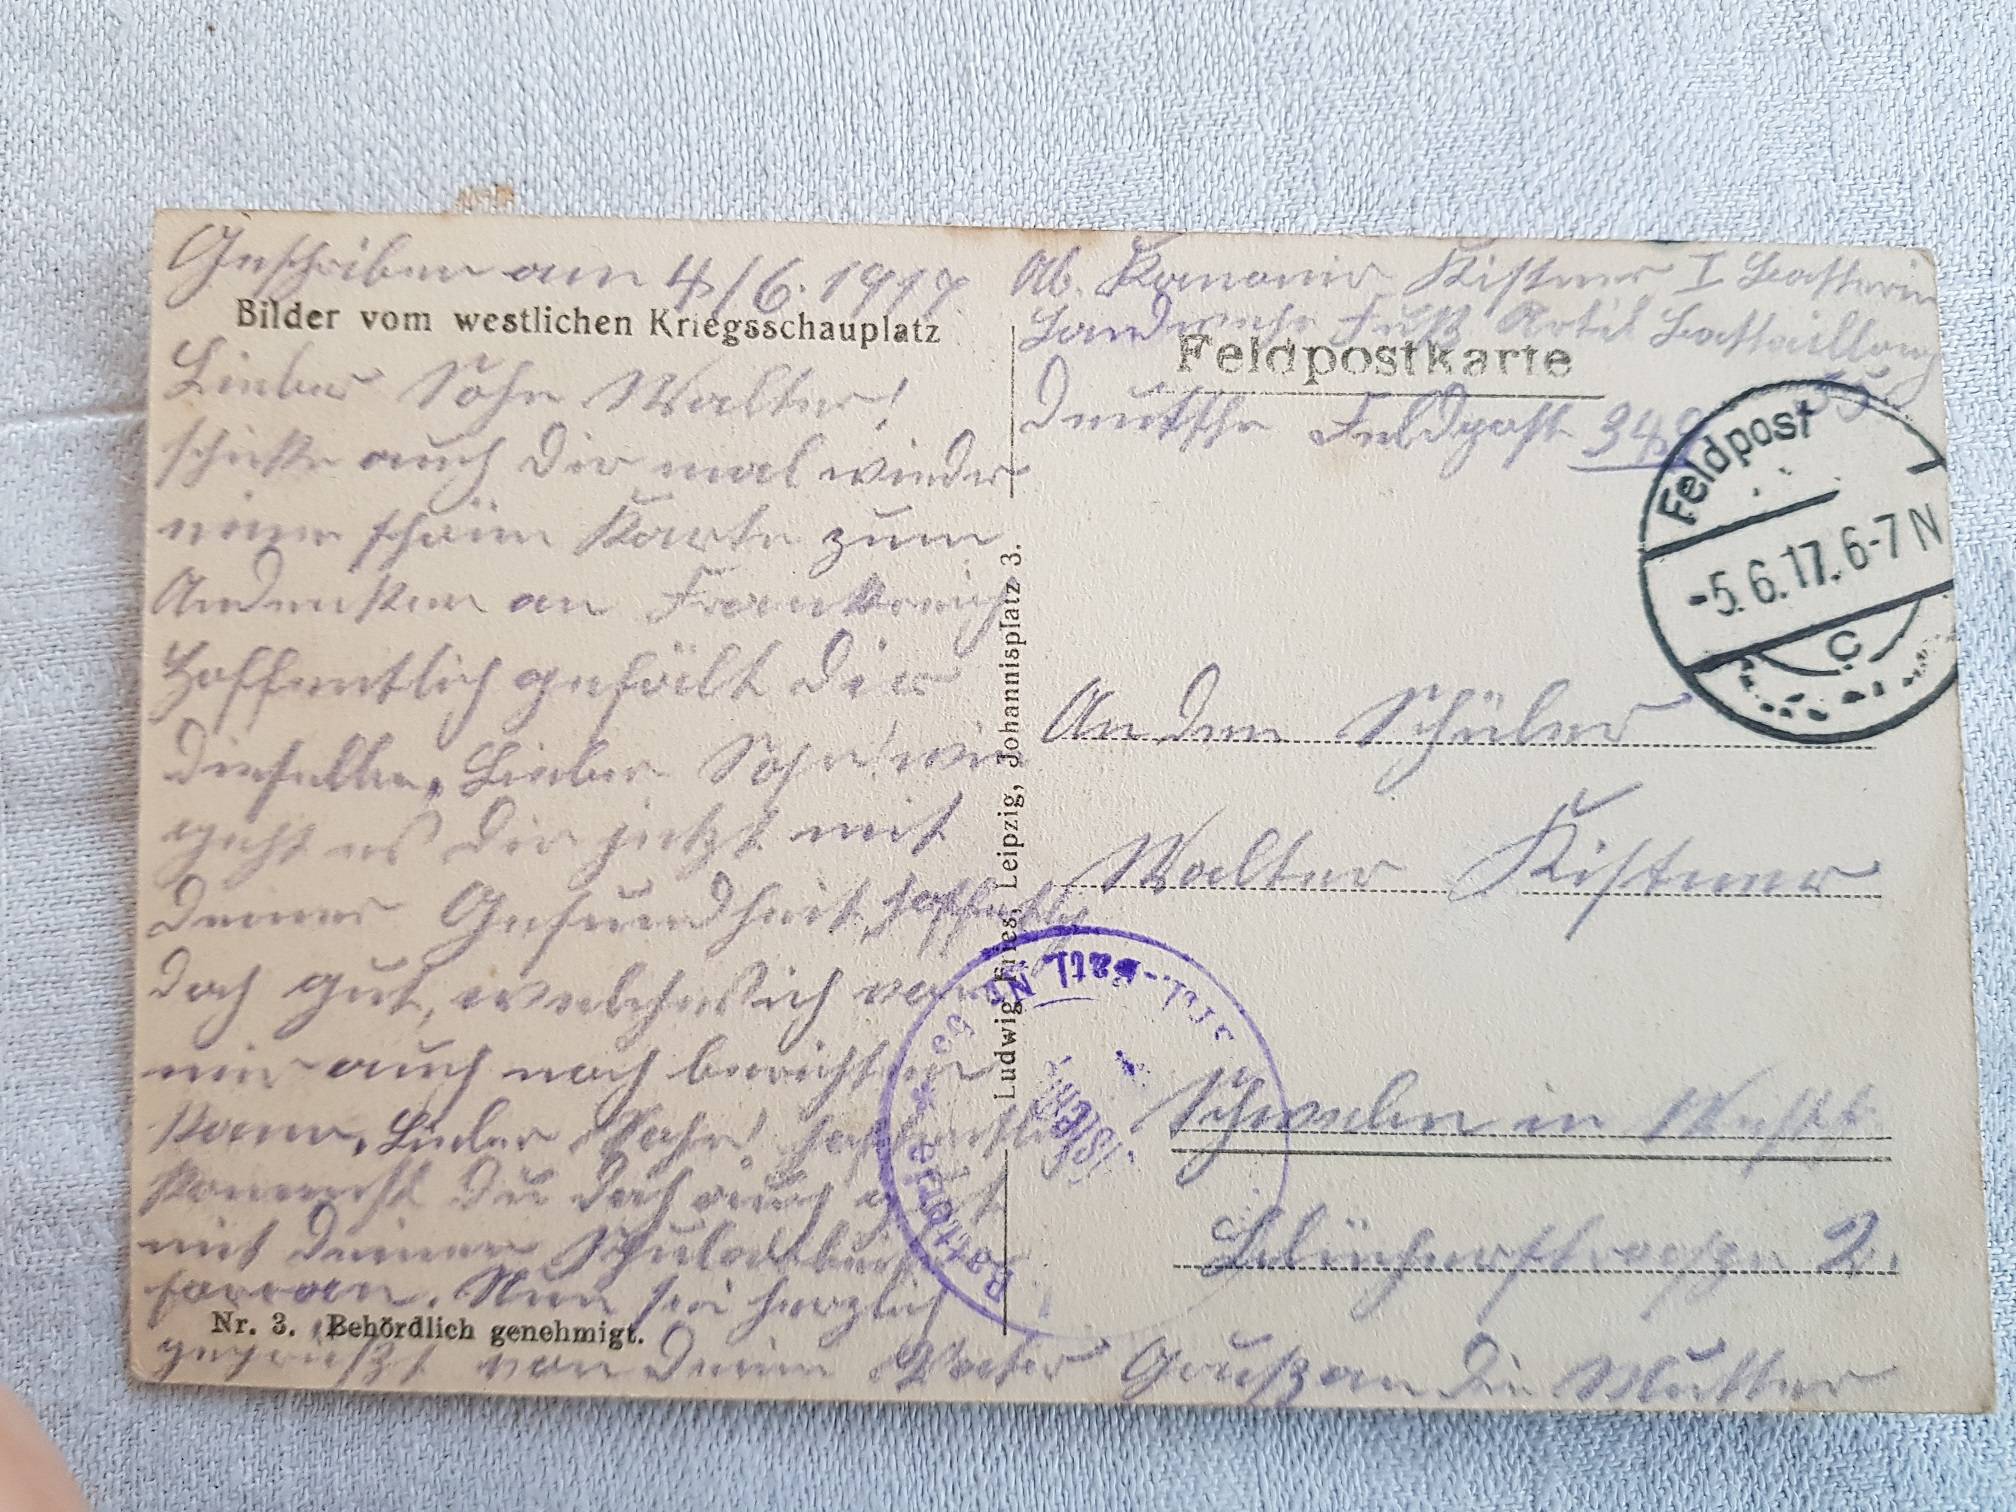 Geschrieben am 4/6. 1917
Bilder vom westlichen Kriegsschauplatz
Lieber Sohn Walter!
schicke auch Dir mal wieder
eine schöne Karte zum
Andenken an Frankreich
Hoffentlich gefält Dir
dieselbe. Lieber Sohn! wie
geht es Dir jetzt mit
Deiner Gesundheit, hoffentlich
doch gut, welches ich von
mir auch noch berichten
kann. Lieber Sohn! hoffentlich
kommst Du doch auch gut
mit Deinen
voran. Nun sei herzlich
Nr. 3. Behördlich genehmigt.
gegrüßt von Deinem Vater Gruß an die Mutter
Ludwig Fries, Leipzig, Johannisplatz 3.
Ab. Kanonir Kistner I Batterie
Landwehr Fuß Artil Battaillong
55
Feldpostkarte
Deutsche Feldpost
Feldpost
-5.6.17.6-7N
c
An den Schüler
Walter Kistner
Schwelm in Westf
Blücherstrasse 2.
Batterie